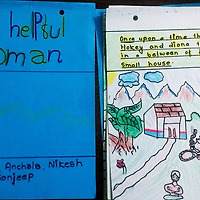 helpful
oman
, Anchala, Nikesh
onjeep
Once upon a time th
Hokey and diana t
in a between of
Small house.